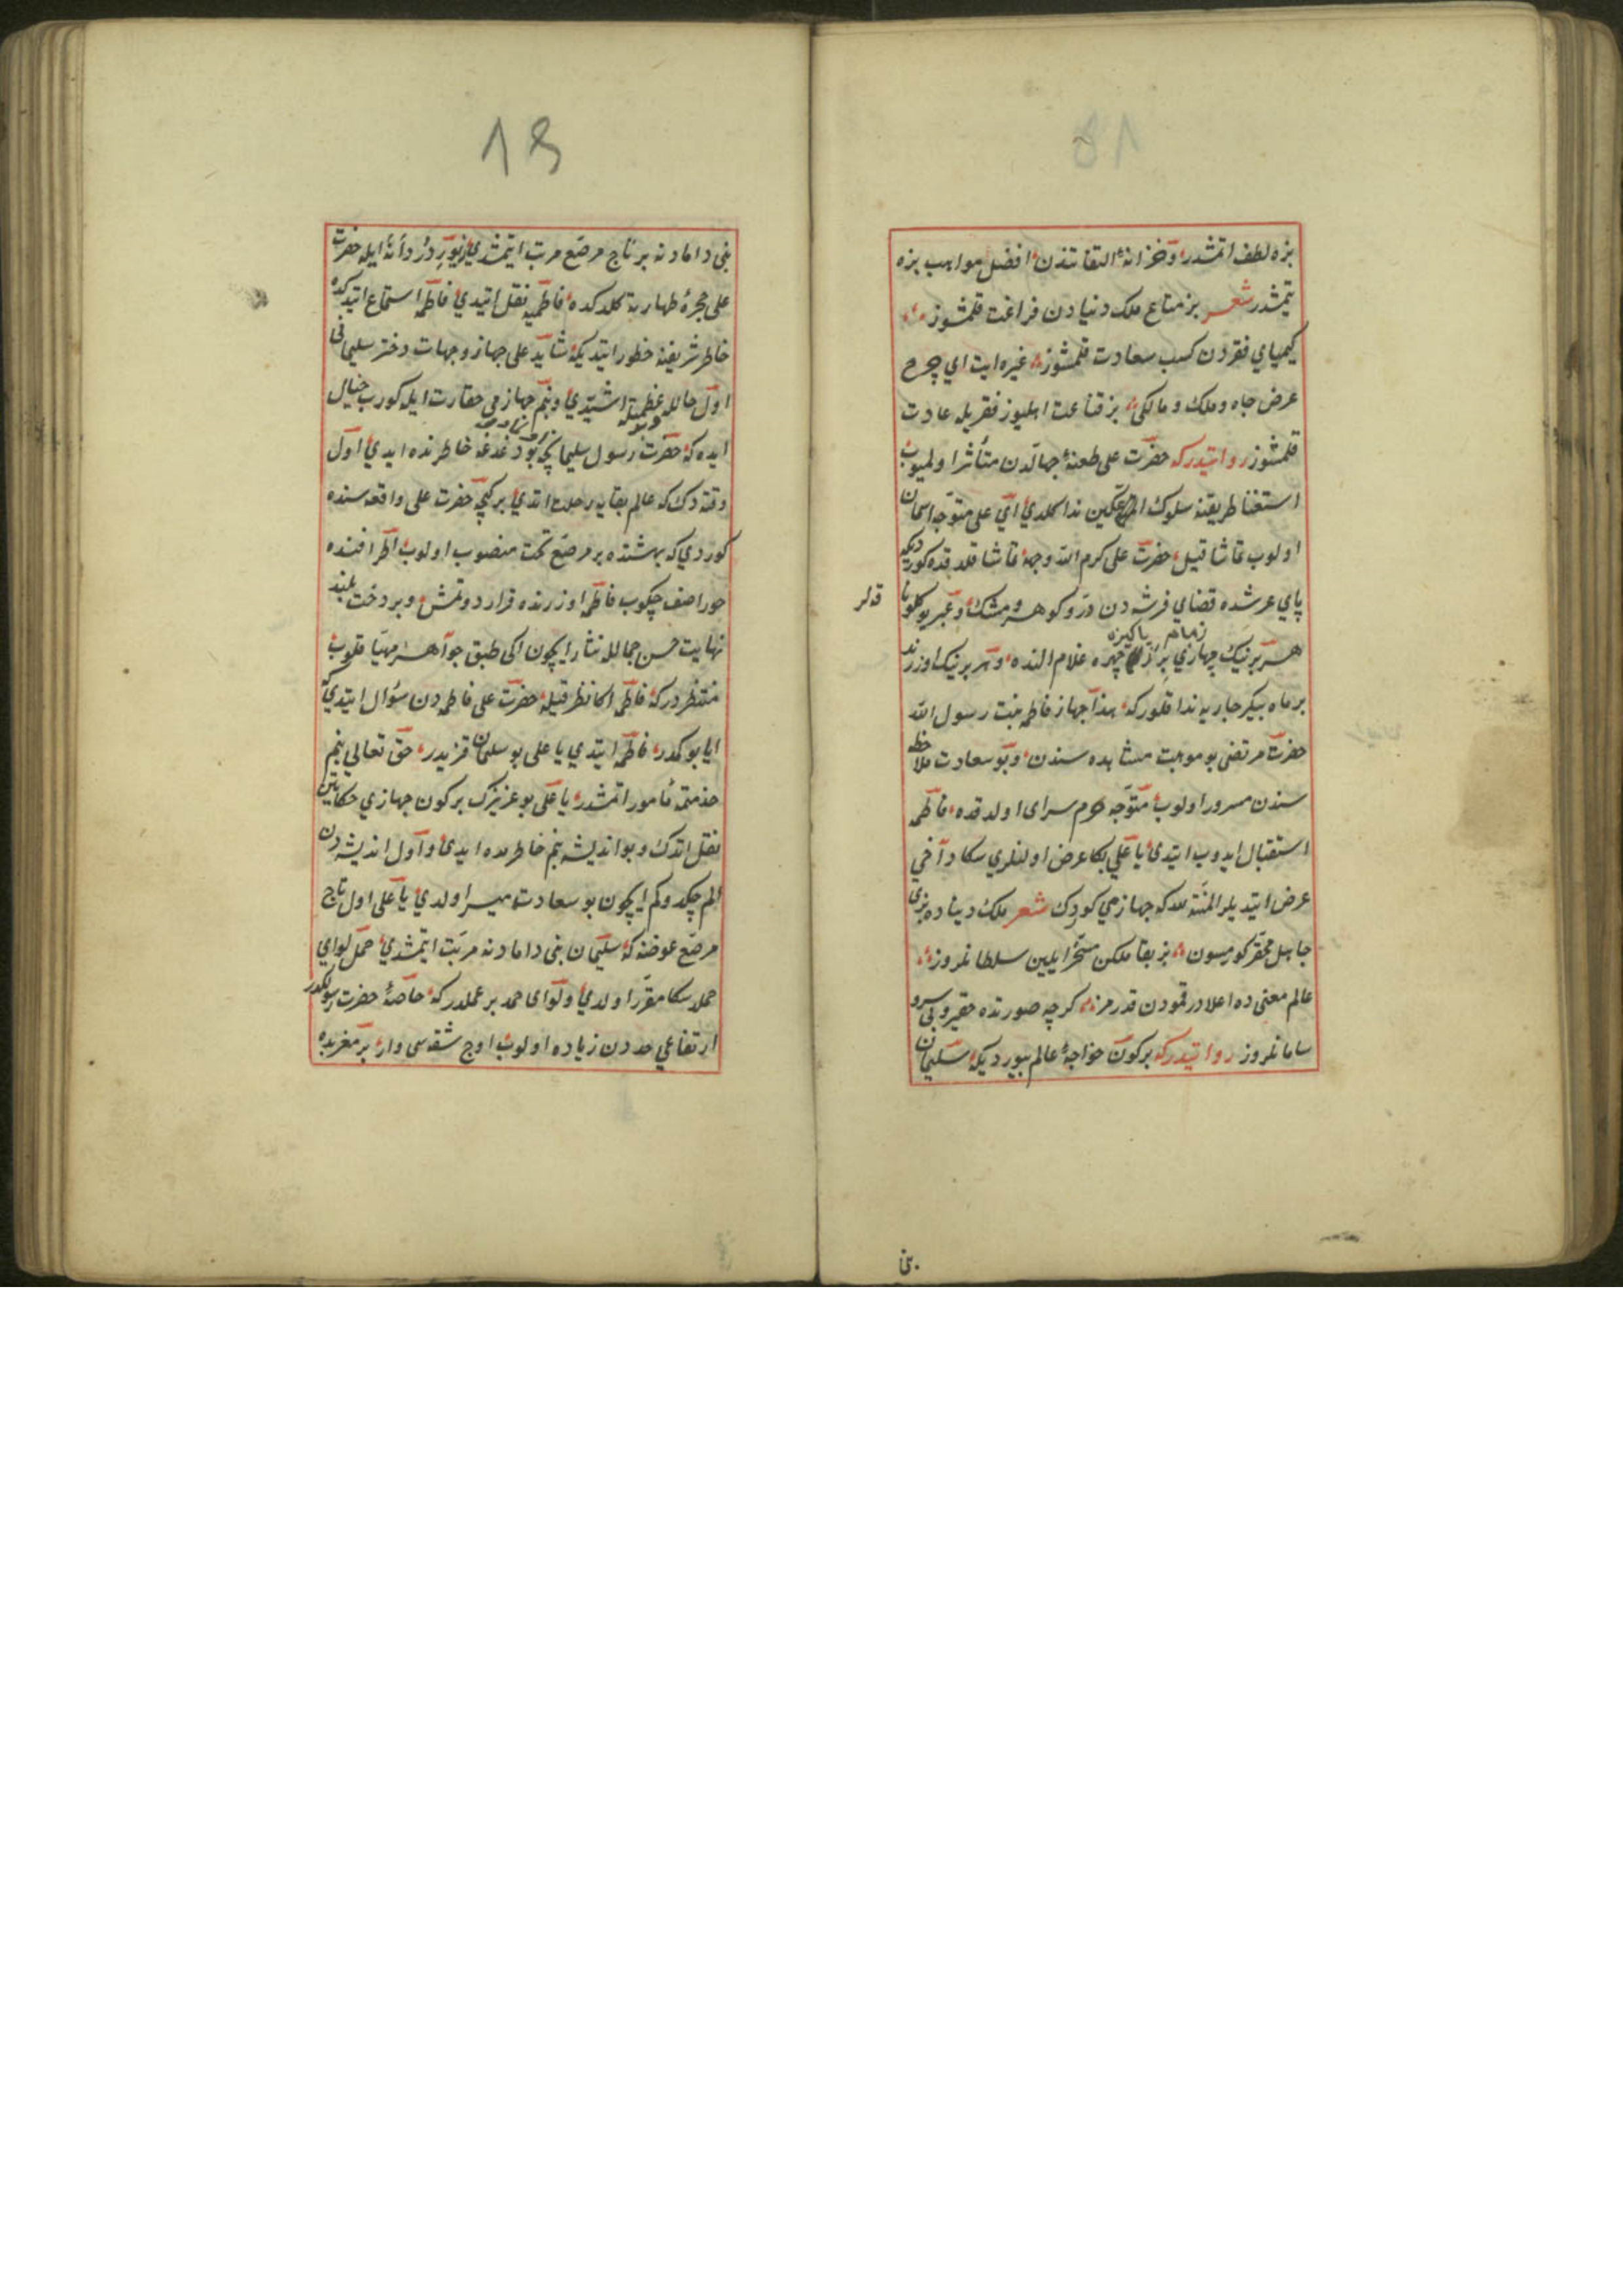 بزه لطف اتمشدر وخزانۀ التفاتندن افضل مواهب بزه
یتمشدر شعر بز متاع ملک دنیادن فراغت قلمشوز
کیمیاي فقردن کسب سعادت قلمشوز غیره ایت اي چرخ
عرض جاه وملک و مالکی بز قناعت اهلیوز فقریله عادت
قلمشوز روایتدرکه حضرت علی طعنۀ جهالدن متأثر اولمیوب
استغنا طریقنه سلوک ندا کلدي اي علی متوجه اسمان
اولوب تماشا قیل حضرت علی کرم الله وجهه تماشا قلدقده کوردیکه
پاي عرشده فضاي فرشدن در و کوهر و مشک و عنبر یوکلو
قدلر
هر برینک جهازي زمام پاکیزه چهره غلام النده و هر برینک اوزرنده
بر ماه پیکر جاریه ندا قلورکه هذا جهاز فاطمه بنت رسول الله
حضرت مرتضی بو موهبت مشاهده سندن وبو سعادت ملاحظه
سندن مسرور اولوب متوجه حرم سراي اولدقده فاطمه
استقبال ایدوب ایتدي یا علی بکا عرض اولنلري سکا دآخي
عرض ایتدیلر المنة لله که جهازمي کوردک شعر ملک دنیاده بزي
جاهل محقر کورمسون بز بقا ملکن مسخر ایلین سلطانلروز
عالم معنی ده اعلادر قمودن قدرمز کرچه صورتده حقیر و بي سرو
سامانلروز روایتدرکه برکون خواجۀ عالم بیوردیکه سلیمان
بني
18
بنی دامادنه بر تاج مرصع مرتب ایتمشدي زیور در دانۀ ایله حضرت
علی حجرۀ طهارته کلدکده فاطمیه نقل ایتدي فاطمه استماع ایتدکده
خاطر شریفنه خطور ایتدیکه شاید علی جهاز وجهات دختر سلیمانی
اول حاللۀ عظمیله اشیتدي وبنم جهازمي حقارت ایله کورب خیال
ایده که حضرت رسول سلیمانچه بو دغدغه خاطرنده ایدي اول
وقته دک که عالم بقایه رحلت اتدي برکیجه حضرت علی واقعه سنده
کوردي که بهشتده بر مرصع تخت منصوب اولوب اطرافنده
حورا صف چکوب فاطمه اوزرنده قرار دوتمش وبر دخت بلند
نهایت حسن جمالله نثار ایچون اکی طبق جواهر مهیا قلوب
منتظردرکه فاطمه اکا نظر قیله حضرت علی فاطمه دن سؤال ایتدي که
ایا بو کمدر فاطمه ایتدي یا علی بو سلیمان قزیدر حق تعالی بنم
خذمتمه مأمور اتمشدر یا علی بو عزیزک برکون جهازي حکایتین
نقل اتدک وبو اندیشه بنم خاطرمده ایدي واول اندیشه دن
الم چکدوکم ایچون بو سعادت میسر اولدي یا علی اول تاج
مرصع عوضنه که سلیمان بنی دامادنه مرتب ایتمشدي حمل لواي
حمد سکا مقرر اولدي ولواي حمد بر عملدرکه خاصۀ حضرت رسولکدر
ارتفاعي حددن زیاده اولوب اوچ شقه سی وار بر مغربده